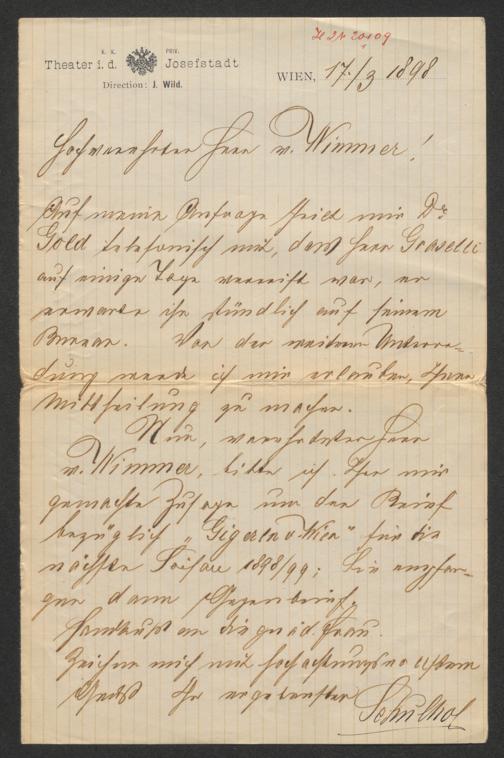 H.I.N. 20109
K. K. PRIV.
Theater i. d. Josefstadt
Direction: J. Wild.
WIEN, 17./3 1898
Hochverehrter Herr v. Wimmer!
Auf meine Anfrage theilt mir Dr
Gold telefonisch mit, dass Herr Graselli
auf einige Tage verreist war, er
erwarte ihn stündlich auf seinem
Bureau. Von der weiteren Unterre-
dung werde ich mir erlauben, Ihnen
Mittheilung zu machen.
Nun, verehrtester Herr
v. Wimmer, bitte ich Ihre mir
gemachte Zusage um den Brief
bezüglich „Gigerln v. Wien" für die
nächste Saison 1898/99; Sie empfan-
gen dann Gegenbrief.
Handkuß an die gnäd. Frau.
Zeichne mich mit hochachtungsvollstem
Ihr ergebenster
Schulhof